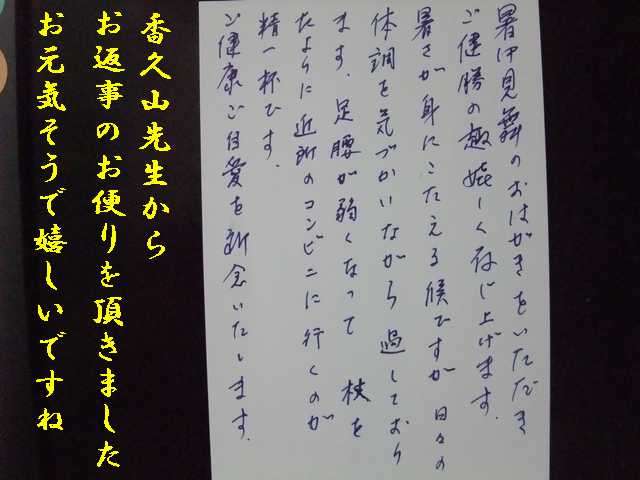 暑中見舞のおはがきをいただき
ご健勝の趣嬉しく存じ上げます。
暑さが身にこたえる候ですが 日々の
体調を気づかいながら 過しており
ます。足腰が弱くなって 杖を
たよりに近所のコンビニに行くのが
精一杯です。
ご健康ご自愛を祈念いたします。
香久山先生から
お返事のお便りを頂きました
お元気そうで嬉しいですね